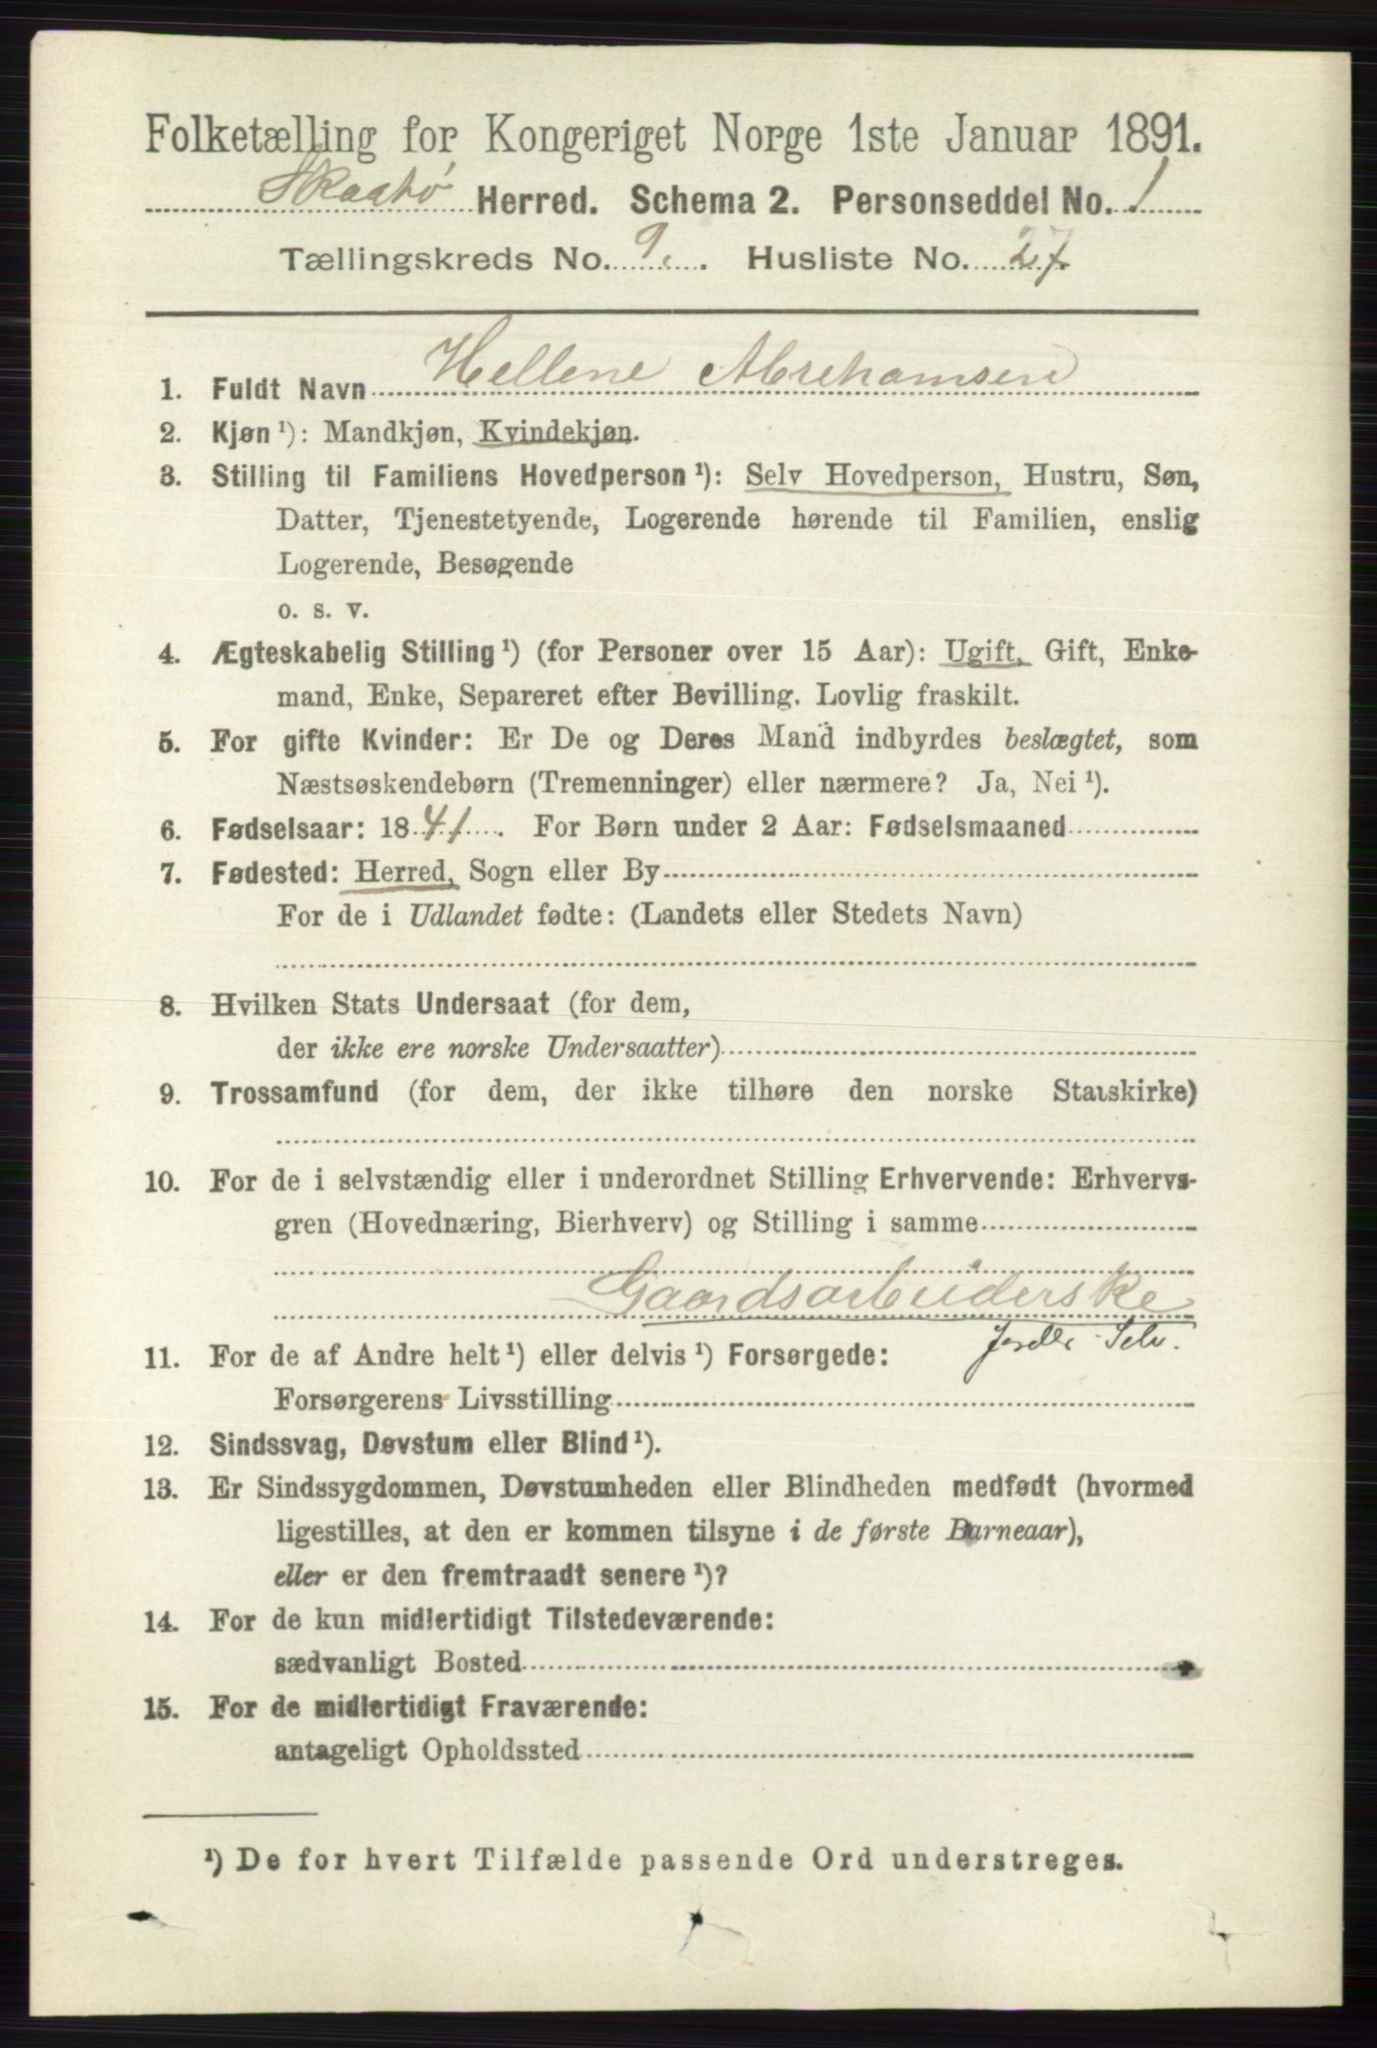 Folketælling for Kongeriget Norge 1ste Januar 1891.
Skaatø Herred. Schema 2. Personseddel No. 1
Tællingskreds No. 9. Husliste No. 27.
1. Fuldt Navn Hellene Abrehamsen
2. Kjøn ¹): Mandkjøn, Kvindekjøn.
3. Stilling til Familiens Hovedperson ¹): Selv Hovedperson, Hustru, Søn,
Datter, Tjenestetyende, Logerende hørende til Familien, enslig
Logerende, Besøgende
o. s. v.
4. Ægteskabelig Stilling ¹) (for Personer over 15 Aar): Ugift, Gift, Enke-
mand, Enke, Separeret efter Bevilling. Lovlig fraskilt.
5. For gifte Kvinder: Er De og Deres Mand indbyrdes beslægtet, som
Næstsøskendebørn (Tremenninger) eller nærmere? Ja, Nei ¹).
6. Fødselsaar: 1841. For Børn under 2 Aar: Fødselsmaaned
7. Fødested: Herred, Sogn eller By
For de i Udlandet fødte: (Landets eller Stedets Navn)
8. Hvilken Stats Undersaat (for dem,
der ikke ere norske Undersaatter)
9. Trossamfund (for dem, der ikke tilhøre den norske Statskirke)
10. For de i selvstændig eller i underordnet Stilling Erhvervende: Erhvervs-
gren (Hovednæring, Bierhverv) og Stilling i samme
Gaardsarbeiderske
Selv.
11. For de af Andre helt ¹) eller delvis ¹) Forsørgede:
Forsørgerens Livsstilling
12. Sindssvag, Døvstum eller Blind ¹).
13. Er Sindssygdommen, Døvstumheden eller Blindheden medfødt (hvormed
ligestilles, at den er kommen tilsyne i de første Barneaar),
eller er den fremtraadt senere ¹)?
14. For de kun midlertidigt Tilstedeværende:
sædvanligt Bosted
15. For de midlertidigt Fraværende:
antageligt Opholdssted
¹) De for hvert Tilfælde passende Ord understreges.